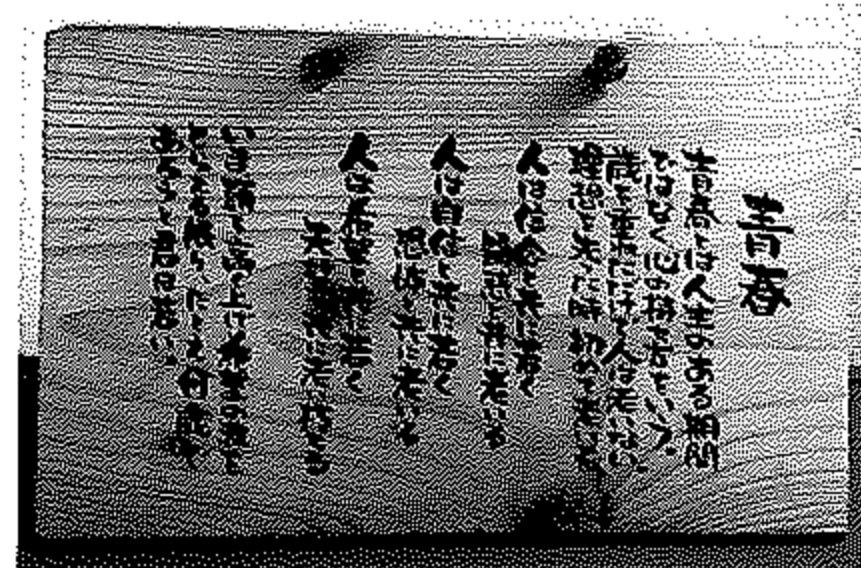 青春
青春とは人生のある期間
ではなく心の持ち方をいう。
歳を重ねただけで人は老いない。
理想を失う時初めて老いる
人は信念と共に若く
疑惑と共に老いる
人は自信と共に若く
恐怖と共に老いる
人は希望と共に若く
失望と共に老い朽ちる
いま頭を高く上げ希望の波に
あるかぎり君は若い。